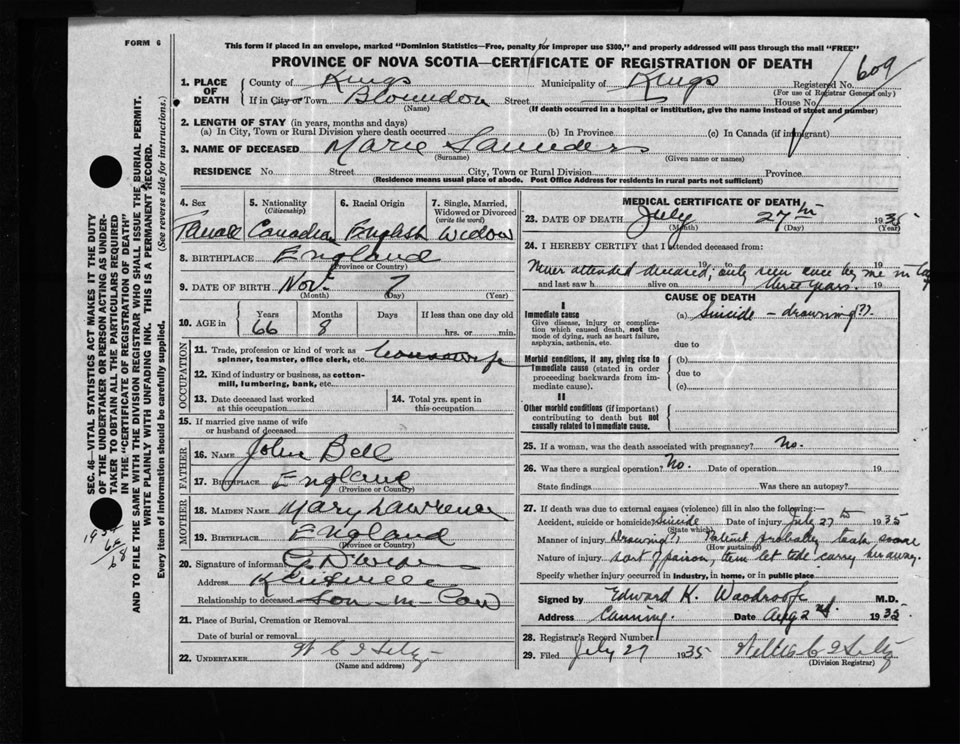 FORM 6
This form if placed in an envelope, marked "Dominion Statistics—Free, penalty for improper use $300," and properly addressed will pass through the mail "FREE"
PROVINCE OF NOVA SCOTIA—CERTIFICATE OF REGISTRATION OF DEATH
609
1. PLACE OF DEATH County of Kings Municipality of Kings Registered No.
(For use of Registrar General only)
If in City or Town Blomidon Street House No.
(Name) (If death occurred in a hospital or institution, give the name instead of street and number)
2. LENGTH OF STAY (in years, months and days)
(a) In City, Town or Rural Division where death occurred (b) In Province (c) In Canada (if immigrant)
3. NAME OF DECEASED Marie Saunders
(Surname) (Given name or names)
RESIDENCE No. Street City, Town or Rural Division Province
(Residence means usual place of abode. Post Office Address for residents in rural parts not sufficient)
4. Sex 5. Nationality (Citizenship) 6. Racial Origin 7. Single, Married, Widowed or Divorced (write the word)
Female Canadian English Widow
8. BIRTHPLACE England
(Province or Country)
9. DATE OF BIRTH Nov. 7 19
(Month) (Day) (Year)
10. AGE in Years Months Days If less than one day old
66 8 hrs. or min.
OCCUPATION
11. Trade, profession or kind of work as spinner, teamster, office clerk, etc. housewife
12. Kind of industry or business, as cotton-mill, lumbering, bank, etc.
13. Date deceased last worked at this occupation 14. Total yrs. spent in this occupation
15. If married give name of wife or husband of deceased
FATHER
16. Name John Bell
17. Birthplace England
(Province or Country)
MOTHER
18. Maiden Name Mary Lawrence
19. Birthplace England
(Province or Country)
20. Signature of informant
Address Kentville
Relationship to deceased Son-in-Law
21. Place of Burial, Cremation or Removal
Date of burial or removal
22. UNDERTAKER
(Name and address)
MEDICAL CERTIFICATE OF DEATH
23. DATE OF DEATH July 27th 1935
(Month) (Day) (Year)
24. I HEREBY CERTIFY that I attended deceased from:
19 to 19
Never attended deceased; only seen once by me in last
and last saw h alive on three years. 19
CAUSE OF DEATH
I
Immediate cause (a) Suicide – drowning (?).
Give disease, injury or complication which caused death, not the mode of dying, such as heart failure, asphyxia, asthenia, etc.
due to
Morbid conditions, if any, giving rise to immediate cause (stated in order proceeding backwards from immediate cause).
(b)
due to
(c)
II
Other morbid conditions (if important) contributing to death but not causally related to immediate cause.
25. If a woman, was the death associated with pregnancy? No.
26. Was there a surgical operation? No. Date of operation 19
State findings Was there an autopsy?
27. If death was due to external causes (violence) fill in also the following:—
Accident, suicide or homicide? Suicide Date of injury July 27th 1935
(State which)
Manner of injury Drowning? Patient probably took some
(How sustained)
Nature of injury sort of poison, then let tide carry her away.
Specify whether injury occurred in industry, in home, or in public place
Signed by Edward K. Woodroofe M.D.
Address Canning. Date Aug 2nd 1935
28. Registrar's Record Number
29. Filed July 27 1935
(Division Registrar)
SEC. 46—VITAL STATISTICS ACT MAKES IT THE DUTY
OF THE UNDERTAKER OR PERSON ACTING AS UNDERTAKER TO OBTAIN ALL THE PARTICULARS REQUIRED
IN THE "CERTIFICATE OF REGISTRATION OF DEATH"
AND TO FILE THE SAME WITH THE DIVISION REGISTRAR WHO SHALL ISSUE THE BURIAL PERMIT.
WRITE PLAINLY WITH UNFADING INK. THIS IS A PERMANENT RECORD.
Every item of information should be carefully supplied. (See reverse side for instructions.)